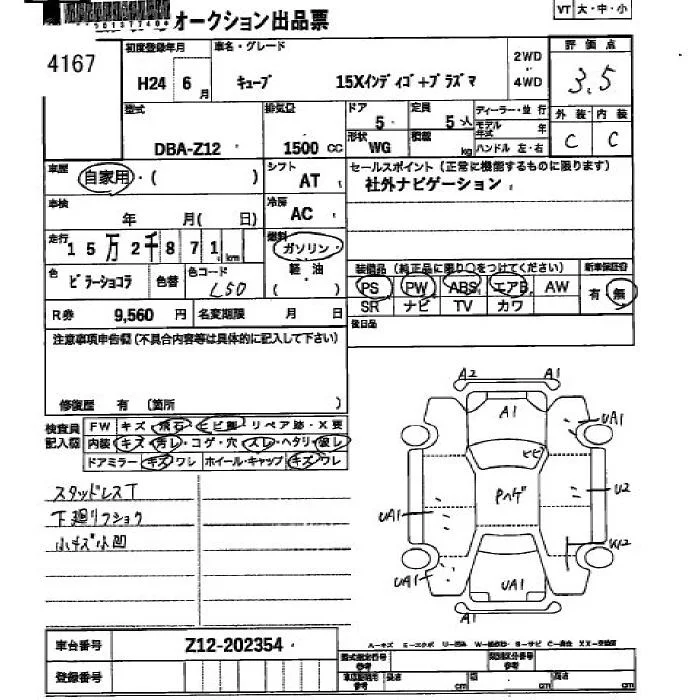 オークション出品票
VT 大・中・小
4167
初度登録年月 車名・グレード 2WD 評価点
H24 6月 キューブ 15Xインディゴ+プラズマ 4WD 3.5
型式 排気量 ドア 定員 ディーラー・並行 外装 内装
5 5人 モデル年式 年
DBA-Z12 1500 cc 形状 WG 積載 kg ハンドル 左・右 C C
車歴 自家用・( ) シフト AT セールスポイント (正常に機能するものに限ります)
社外ナビゲーション
車検 年 月( 日) 冷房 AC
走行 15万2千871km 燃料 ガソリン
軽油
( )
装備品 (純正品に限り○をつけてください) 新車保証書
色 ビラーショコラ 色替 色コード L50
PS PW ABS エアB AW 有・無
SR ナビ TV カワ
R券 9,560円 名変期限 月 日 後日品
注意事項申告欄 (不具合内容等は具体的に記入して下さい)
修復歴 有 (箇所 )
検査員記入欄 FW キズ・飛石・ヒビ割・リペア跡・X要
内装 キズ・汚レ・コゲ・穴・スレ・ヘタリ・破レ
ドアミラー キズ・ワレ ホイール・キャップ キズ・ワレ
スタッドレスT
下廻リフショク
小キズ小凹
A2 A1
A1
UA1
ヒビ
Pハゲ
U2
UA1
W2
UA1
UA1
A1
車台番号 Z12-202354
A-キズ E-エクボ U-凹み W-補修跡 S-サビ C-腐食 XX-交換済
型式指定番号 参考 類別区分番号 参考
登録番号 cm cm cm